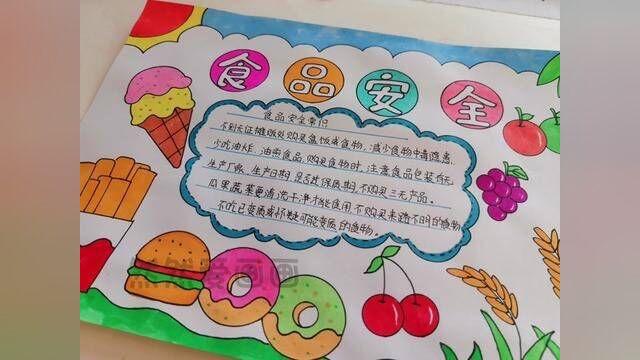 食品安全
食品安全常识
不到无证摊贩处购买盒饭或食物，减少食物中毒隐患。
少吃油炸、油烟食品，购买食物时，注意食品包装有无
生产厂家、生产日期，是否过保质期，不购买三无产品。
瓜果蔬菜要清洗干净才能食用，不购买来路不明的食物
不吃已变质或怀疑可能变质的食物。
然然爱画画